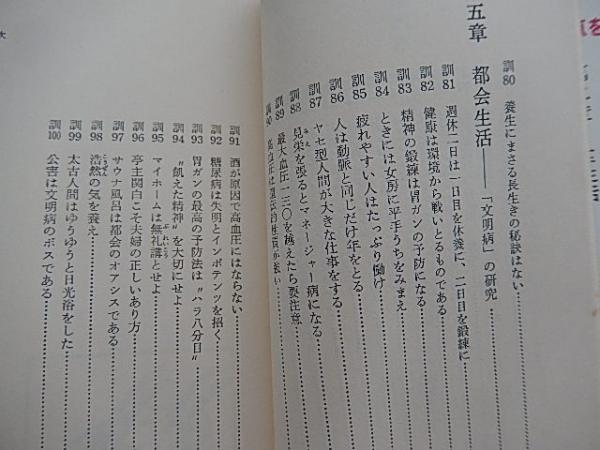 訓80 養生にまさる長生きの秘訣はない
五章 都会生活――「文明病」の研究
訓81 週休二日は一日目を休養に、二日目を鍛錬に
訓82 健康は環境から戦いとるものである
訓83 精神の鍛錬は胃ガンの予防になる
訓84 ときには女房に平手うちをみまえ
訓85 疲れやすい人はたっぷり働け
訓86 人は動脈と同じだけ年をとる
訓87 ヤセ型人間が大きな仕事をする
訓88 見栄を張るとマネージャー病になる
訓89 最大血圧一三〇を越えたら要注意
90 高血圧は遺伝的性質が強い
訓91 酒が原因で高血圧にはならない
訓92 糖尿病は失明とインポテンツを招く
訓93 胃ガンの最高の予防法は“ハラ八分目”
訓94 “飢えた精神”を大切にせよ
訓95 マイホームは無礼講とせよ
訓96 亭主関白こそ夫婦の正しいあり方
訓97 サウナ風呂は都会のオアシスである
訓98 浩然の気を養え
訓99 太古人間はゆうゆうと日光浴をした
訓100 公害は文明病のボスである
次